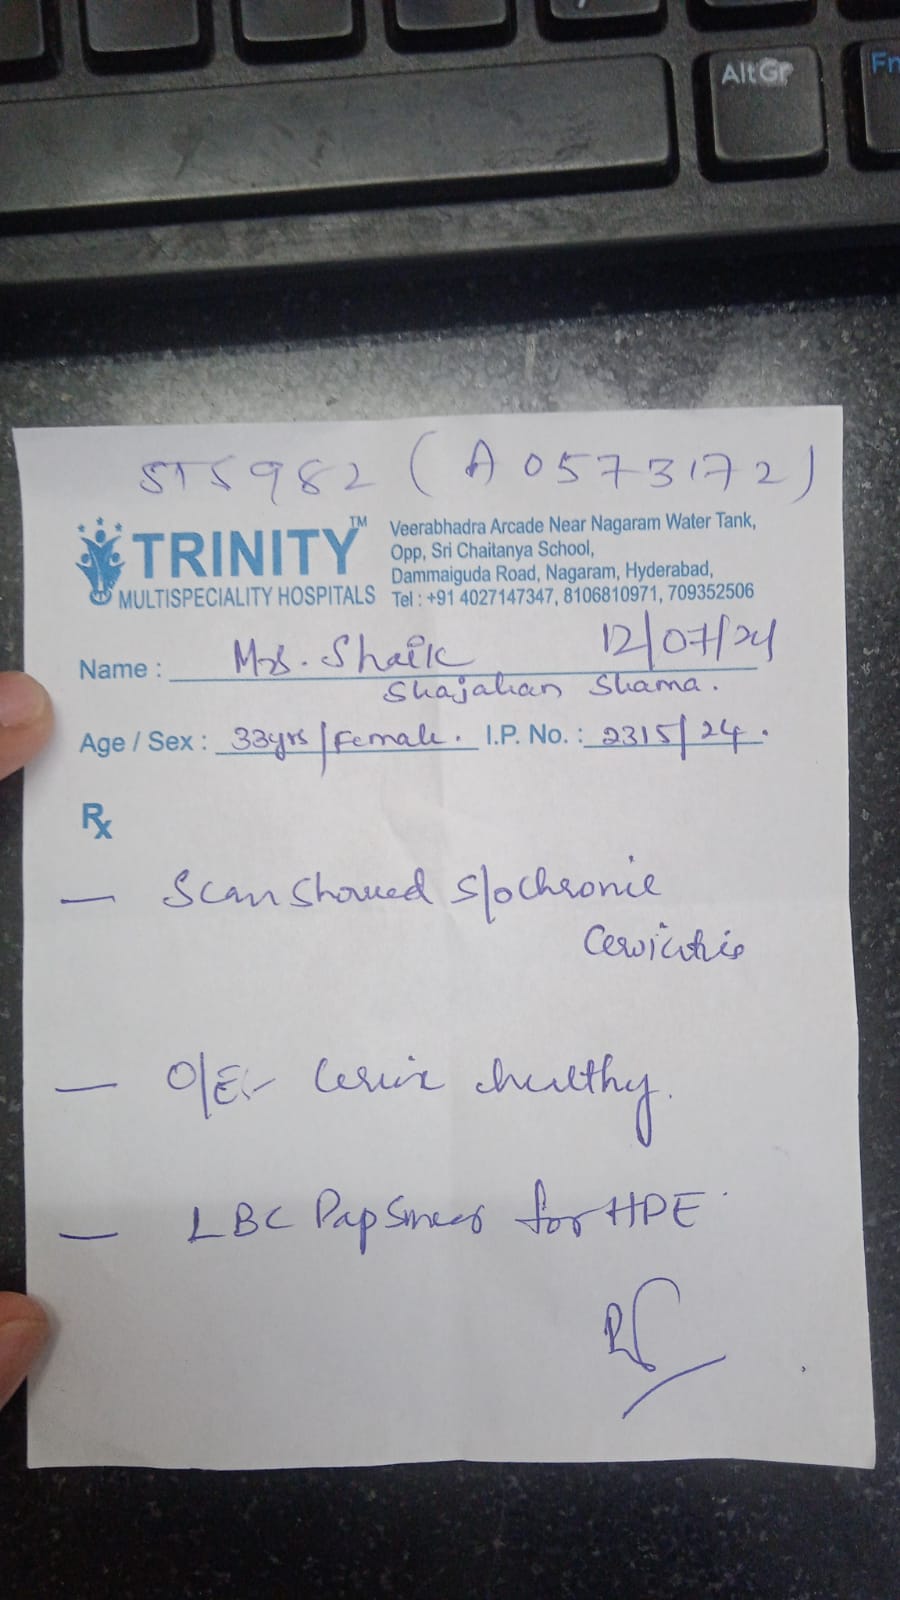 AltGr
Fn
ST5982 (A0573172)
TRINITY™
MULTISPECIALITY HOSPITALS
Veerabhadra Arcade Near Nagaram Water Tank,
Opp, Sri Chaitanya School,
Dammaiguda Road, Nagaram, Hyderabad,
Tel : +91 4027147347, 8106810971, 709352506
12/07/24
Name : Mrs. Shaik
Shajahan Shama.
Age / Sex : 33yrs/Female. I.P. No. : 2315/24.
Rx
— Scan showed s/o chronic
Cervicitis
— O/E:- Cervix healthy.
— LBC Pap Smear for HPE